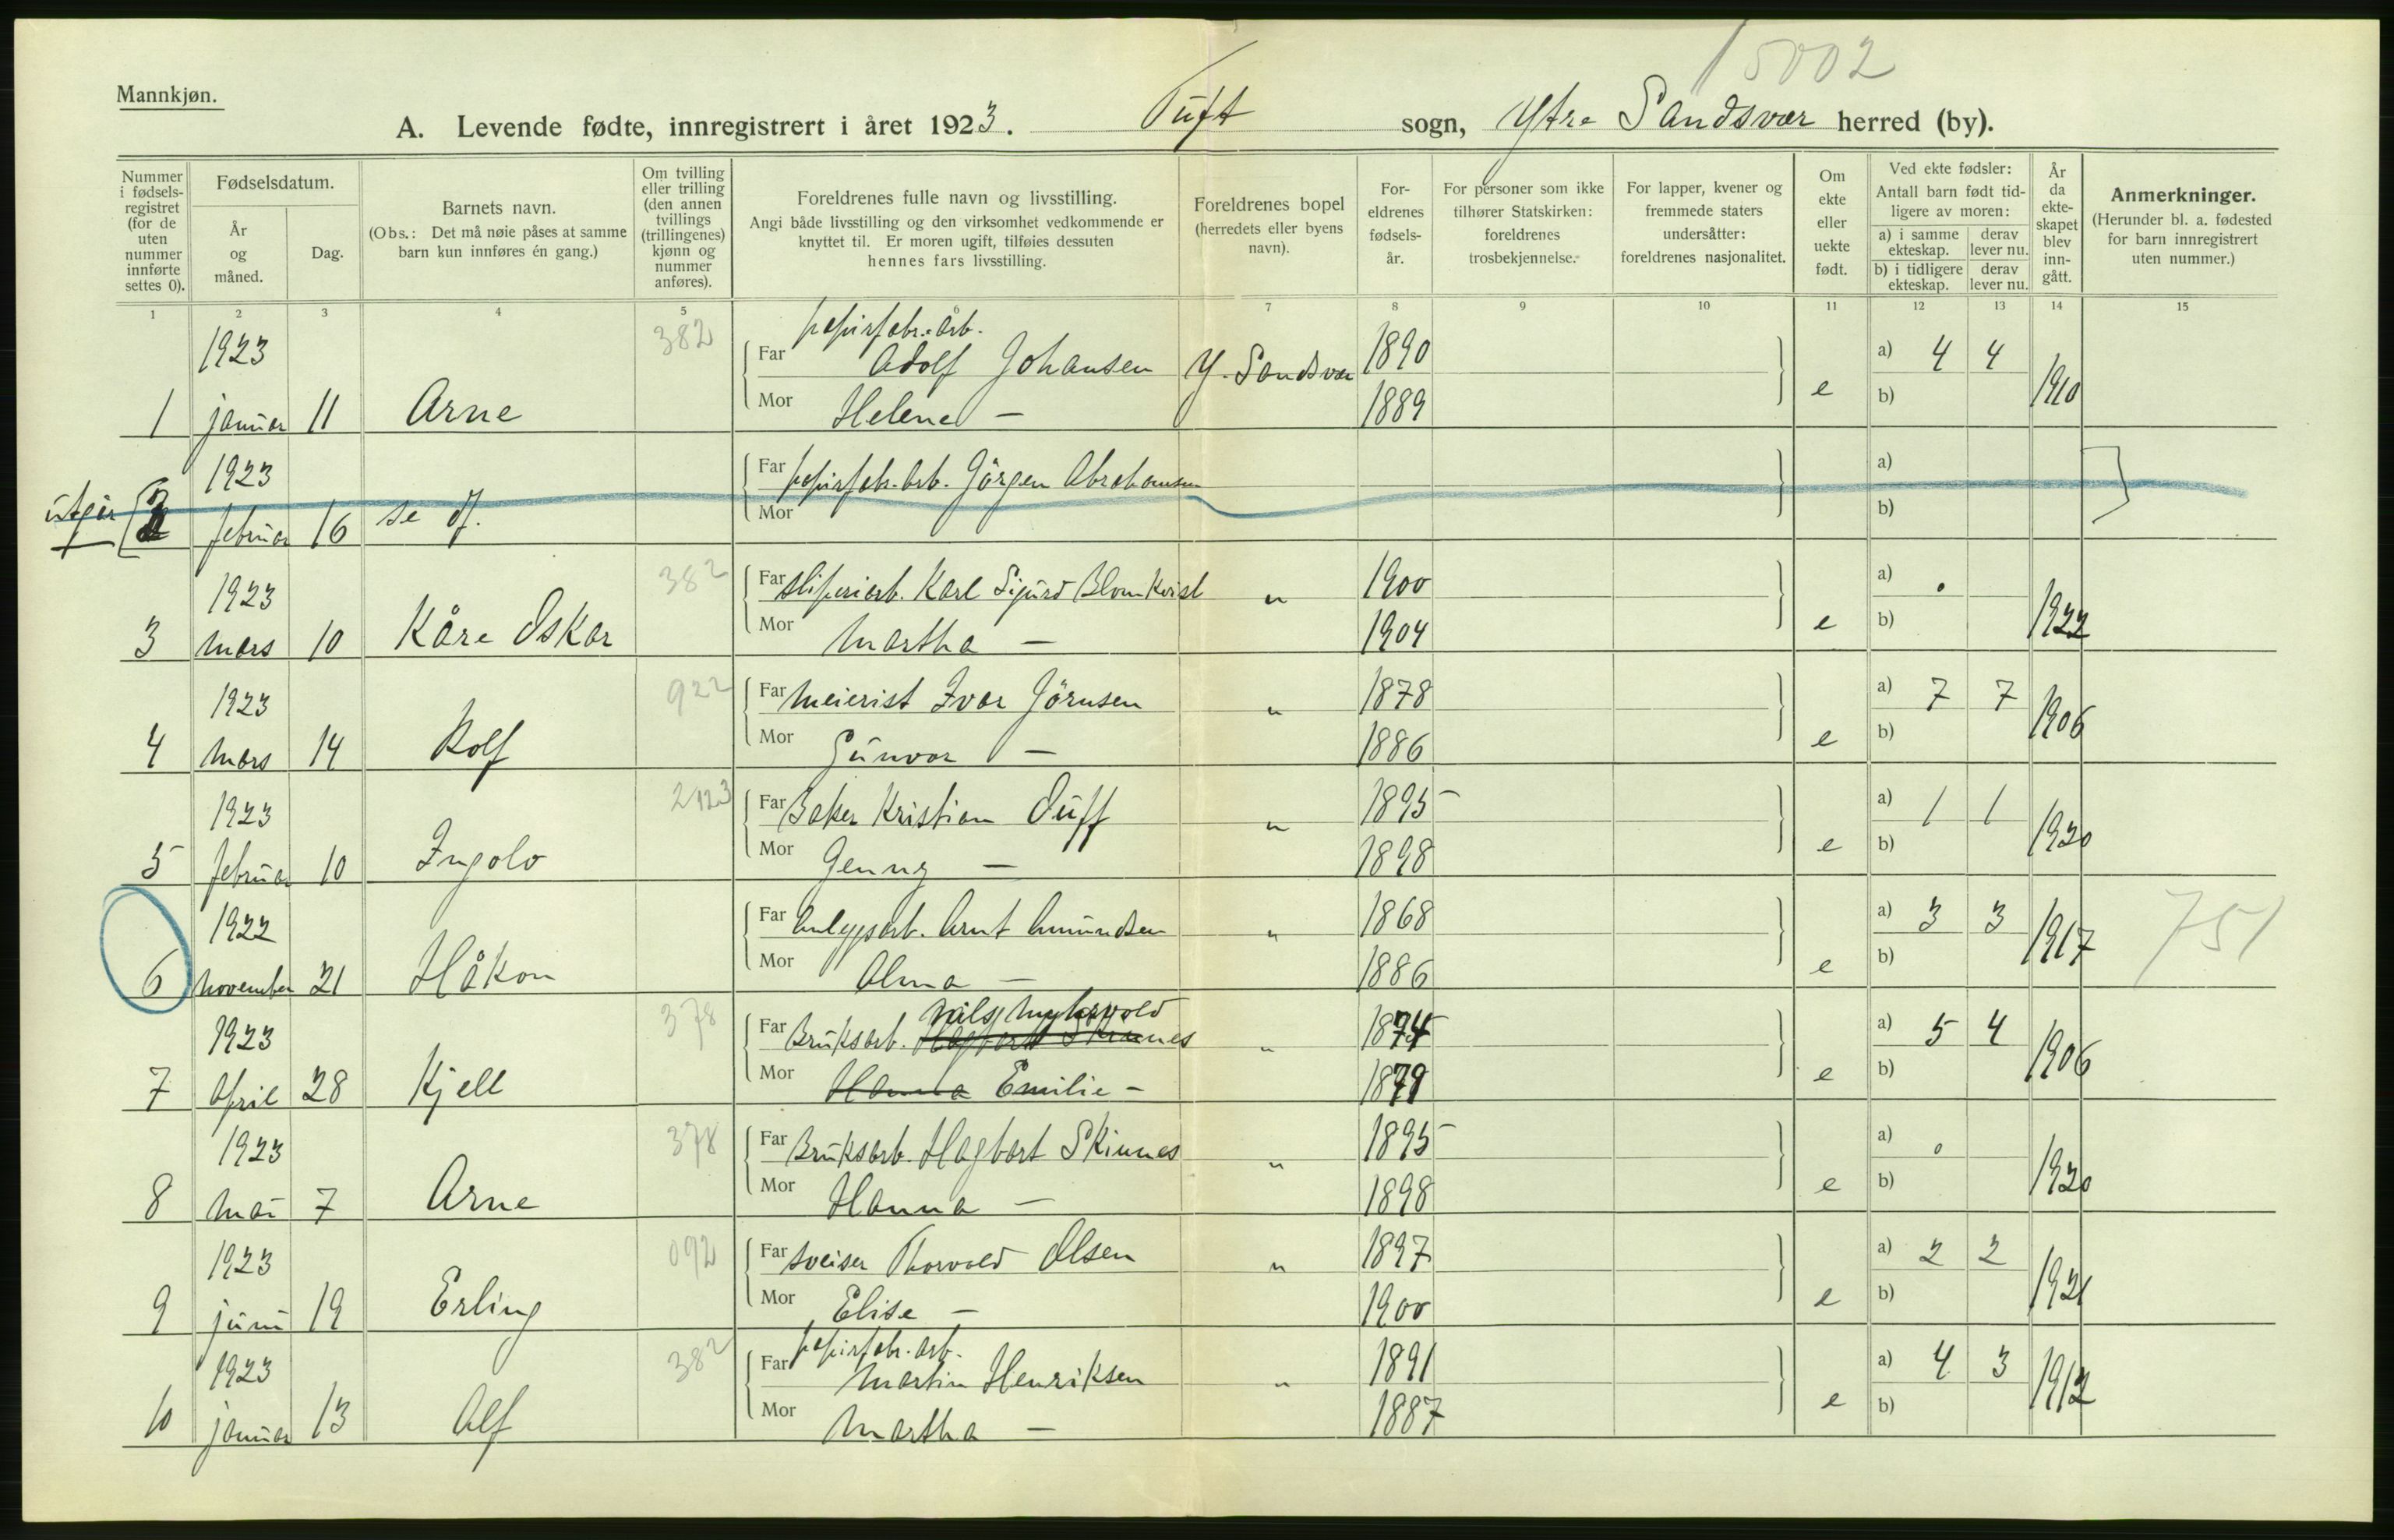 15002
Mannkjøn.
A. Levende fødte, innregistrert i året 1923. Tuft sogn, Ytre Sandsvær herred (by).
Nummer i fødsels-registret (for de uten nummer innførte settes 0).
Fødselsdatum.
År og måned.
Dag.
Barnets navn.
(Obs.: Det må nøie påses at samme barn kun innføres én gang.)
Om tvilling eller trilling (den annen tvillings (trillingenes) kjønn og nummer anføres).
Foreldrenes fulle navn og livsstilling.
Angi både livsstilling og den virksomhet vedkommende er knyttet til. Er moren ugift, tilføies dessuten hennes fars livsstilling.
Foreldrenes bopel (herredets eller byens navn).
For-eldrenes fødsels-år.
For personer som ikke tilhører Statskirken: foreldrenes trosbekjennelse.
For lapper, kvener og fremmede staters undersåtter: foreldrenes nasjonalitet.
Om ekte eller uekte født.
Ved ekte fødsler: Antall barn født tid-ligere av moren:
a) i samme ekteskap. derav lever nu.
b) i tidligere ekteskap. derav lever nu.
År da ekte-skapet blev inn-gått.
Anmerkninger.
(Herunder bl. a. fødested for barn innregistrert uten nummer.)
1 2 3 4 5 6 7 8 9 10 11 12 13 14 15
1923 382 papirfabr.arb.
Far Adolf Johansen Y. Sandsvær 1890 a) 4 4
1 januar 11 Arne Mor Helene — 1889 e b) 1910
1923 Far papirfabr.arb. Jörgen Abrahamsen a)
utgår 2 februar 16 se df. Mor b)
1923 382 Far Sliperiarb. Karl Sigurd Blomkvist „ 1900 a) .
3 mars 10 Kåre Oskar Mor Martha — 1904 e b) 1922
1923 922 Far Meierist Ivar Jörnsen „ 1878 a) 7 7
4 mars 14 Rolf Mor Gunvor — 1886 e b) 1906
1923 2123 Far Baker Kristian Tuff „ 1895 a) 1 1
5 februar 10 Ingolv Mor Jenny — 1898 e b) 1920
1922 Far Anleggsarb. Arnt Amundsen „ 1868 a) 3 3 751
6 november 21 Håkon Mor Alma — 1886 e b) 1917
Nils Myhrvold
1923 378 Far Bruksarb. Hagbart Skinnes „ 1874 a) 5 4
7 April 28 Kjell Mor Hanna Emilie — 1879 e b) 1906
1923 378 Far Bruksarb. Hagbart Skinnes „ 1895 a) 0
8 mai 7 Arne Mor Hanna — 1898 e b) 1920
1923 092 Far Sveiser Thorvald Olsen „ 1897 a) 2 2
9 juni 19 Erling Mor Elise — 1900 e b) 1921
1923 382 papirfabr.arb.
Far Martin Henriksen „ 1891 a) 4 3
10 januar 13 Alf Mor Martha — 1887 e b) 1912